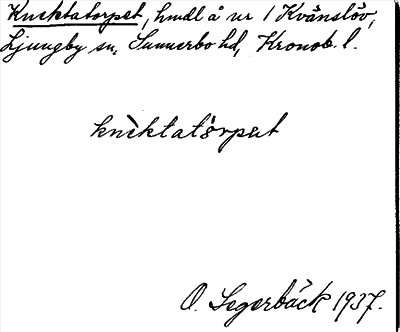 Knektatorpet, hmdl å nr 1 Kvänslöv,
Ljungby sn, Sunnerbo hd, Kronob. l.
knèktatòrpət
O. Segerbäck 1937.